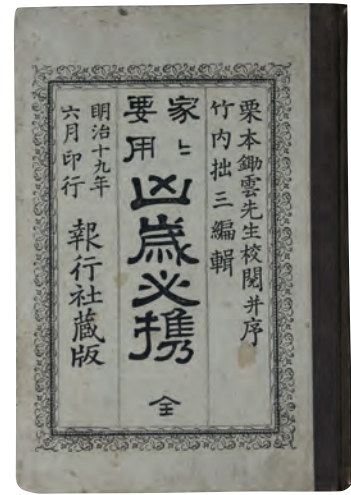 栗本鋤雲先生校閲并序
竹内拙三編輯
家〻要用
凶歳必携
全
明治十九年
六月印行
報行社蔵版